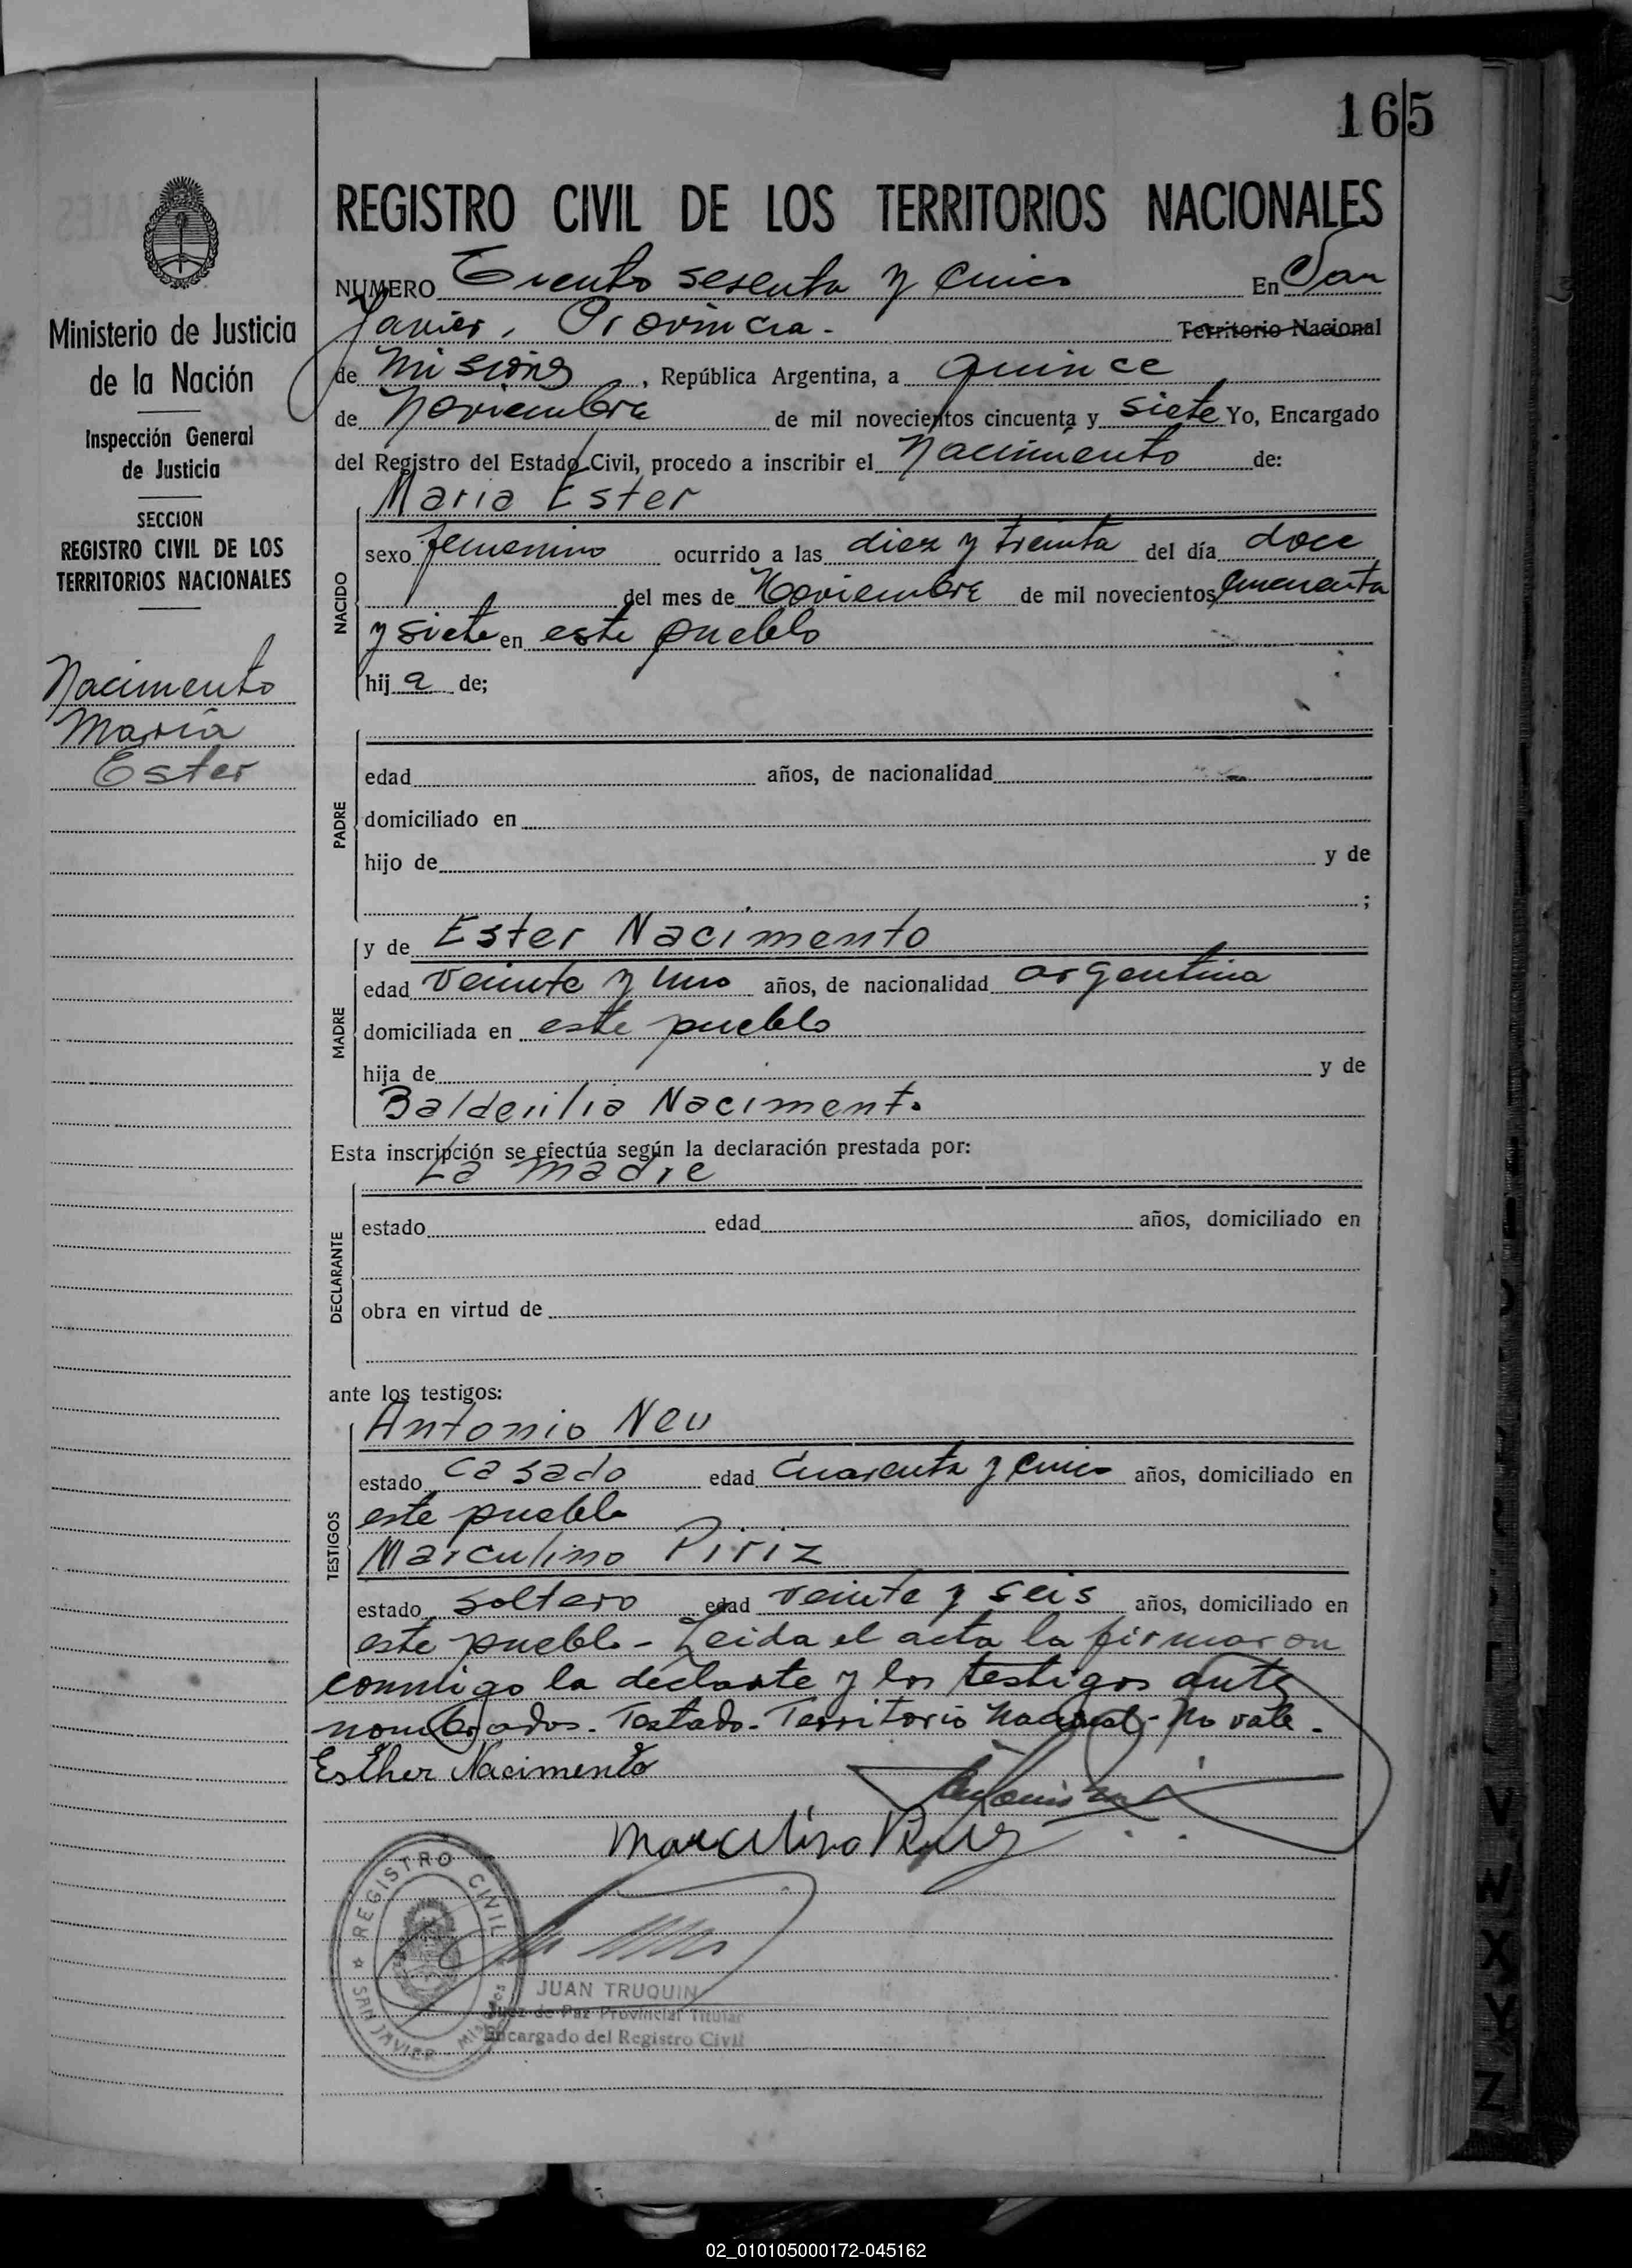 165
REGISTRO CIVIL DE LOS TERRITORIOS NACIONALES
Ministerio de Justicia
de la Nación
Inspección General
de Justicia
SECCION
REGISTRO CIVIL DE LOS
TERRITORIOS NACIONALES
Nacimento
Maria
Ester
NUMERO Ciento sesenta y cinco En San
Javier, Provincia. Territorio Nacional
de Misiones, República Argentina, a quince
de Noviembre de mil novecientos cincuenta y siete Yo, Encargado
del Registro del Estado Civil, procedo a inscribir el Nacimiento de:
NACIDO
Maria Ester
sexo femenino ocurrido a las diez y treinta del día doce
del mes de Noviembre de mil novecientos cincuenta
y siete en este pueblo
hij a de;
PADRE
edad años, de nacionalidad
domiciliado en
hijo de y de
;
MADRE
y de Ester Nacimento
edad veinte y uno años, de nacionalidad argentina
domiciliada en este pueblo
hija de y de
Nacimento
Esta inscripción se efectúa según la declaración prestada por:
DECLARANTE
La madre
estado edad años, domiciliado en
obra en virtud de
ante los testigos:
TESTIGOS
Antonio Neu
estado casado edad cuarenta y cinco años, domiciliado en
este pueblo
Marculino Piriz
estado soltero edad veinte y seis años, domiciliado en
este pueblo - Leida el acta la firmaron
conmigo la declarte y los testigos ante
nombrados. Testado. Territorio Nacional - No vale.
Esther Nacimento
Marculino Piriz
REGISTRO CIVIL
SAN JAVIER MISIONES
JUAN TRUQUIN
Juez de Paz Provincial Titular
Encargado del Registro Civil
V
W
X
Y
Z
02_010105000172-045162